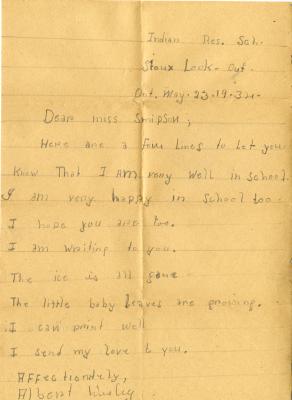 Indian Res. Sch.
Sioux Look. Out.
Ont. May. 23. 19. 34.
Dear miss Smipson;
Here are a few lines to let you
Know That I AM very well in school.
I am very happy in school too.
I hope you are too.
I am writing to you.
The ice is all gone
The little baby leaves are growing.
I can print well
I send my love to you.
Affectionately,
Albert